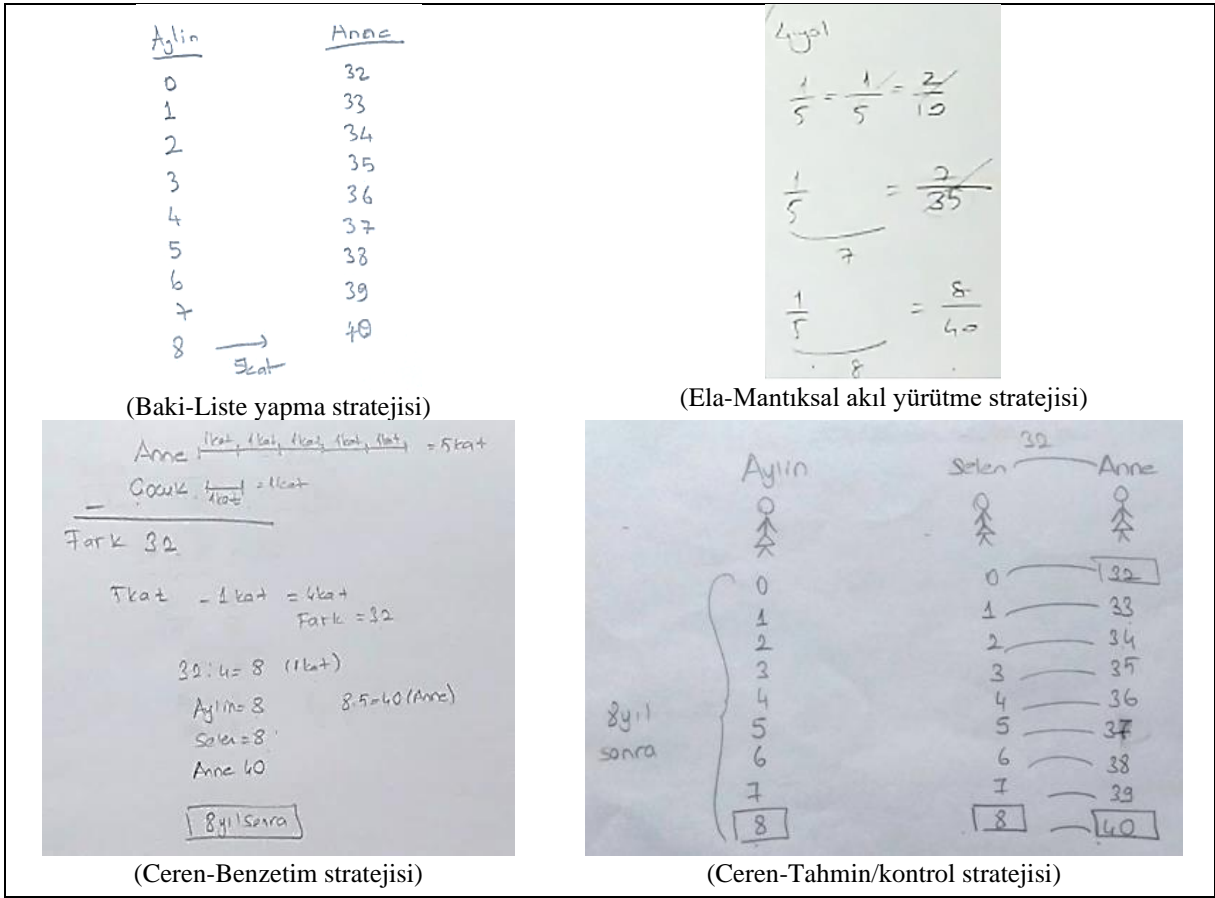 Aylin Anne
0 32
1 33
2 34
3 35
4 36
5 37
6 38
7 39
8 → 40
5kat
(Baki-Liste yapma stratejisi)
4.yol
1/5 = 1/5 = 2/10
1/5 = 7/35
7
1/5 = 8/40
8
(Ela-Mantıksal akıl yürütme stratejisi)
Anne 1kat, 1kat, 1kat, 1kat, 1kat, = 5kat
Çocuk 1kat = 1kat
Fark 32
5kat - 1kat = 4kat
Fark = 32
32:4= 8 (1kat)
Aylin= 8 8.5=40 (Anne)
Selen=8
Anne 40
8 yıl sonra
(Ceren-Benzetim stratejisi)
32
Aylin Selen Anne
0 0 32
1 1 33
2 2 34
3 3 35
4 4 36
5 5 37
6 6 38
7 7 39
8 8 40
8yıl
sonra
(Ceren-Tahmin/kontrol stratejisi)